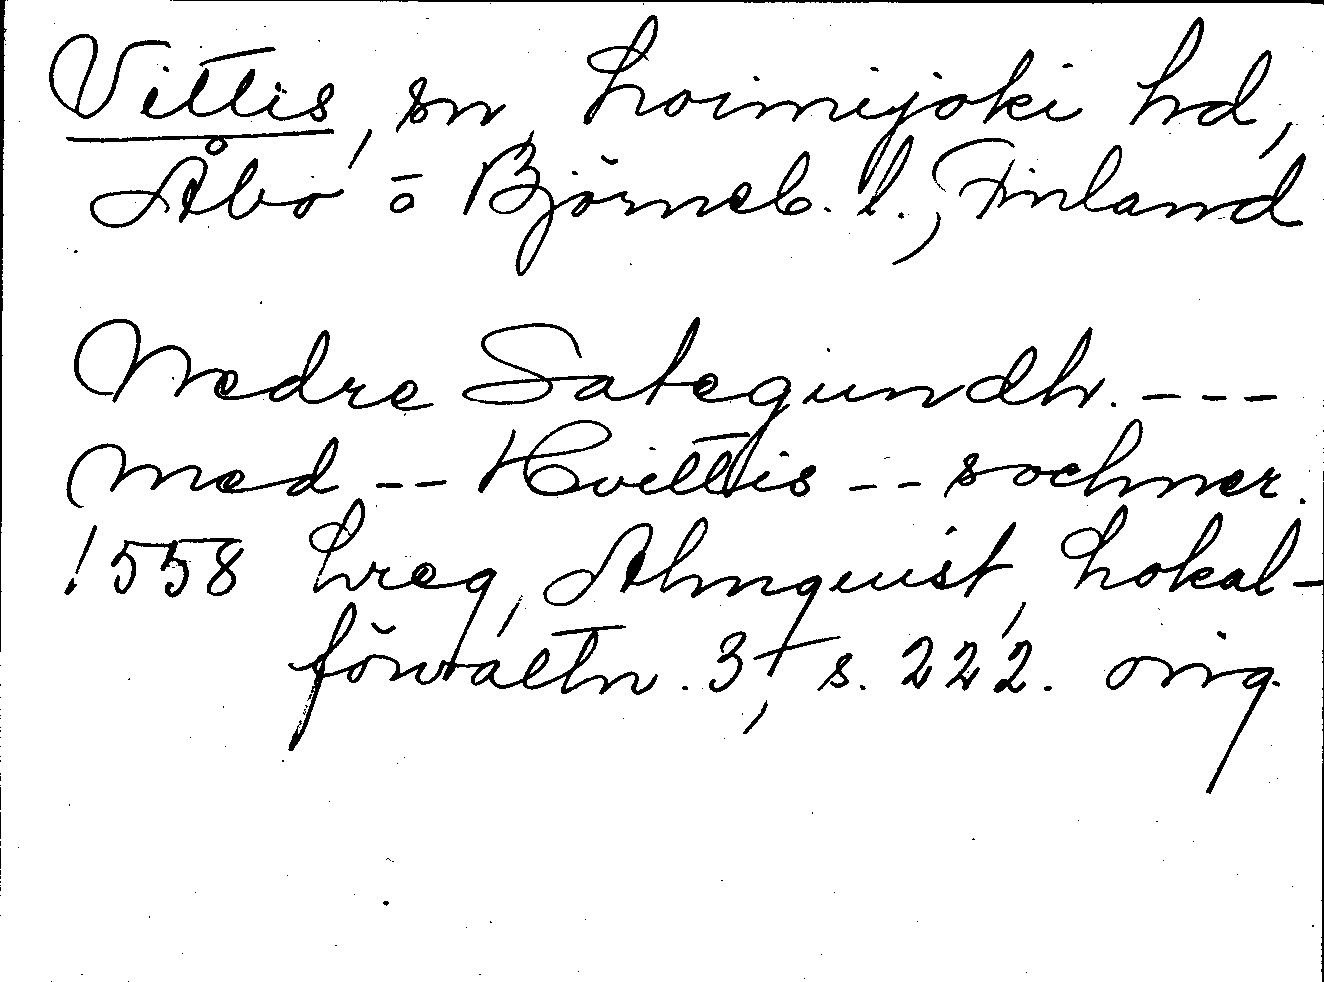 Vittis, sn, Loimijoki hd,
Åbo ō Björneb. l., Finland
Nedre Sategundh. ---
med -- Hvittis -- sochner.
1558 Lreg, Almquist, Lokal-
förvaltn. 3, s. 222. orig.